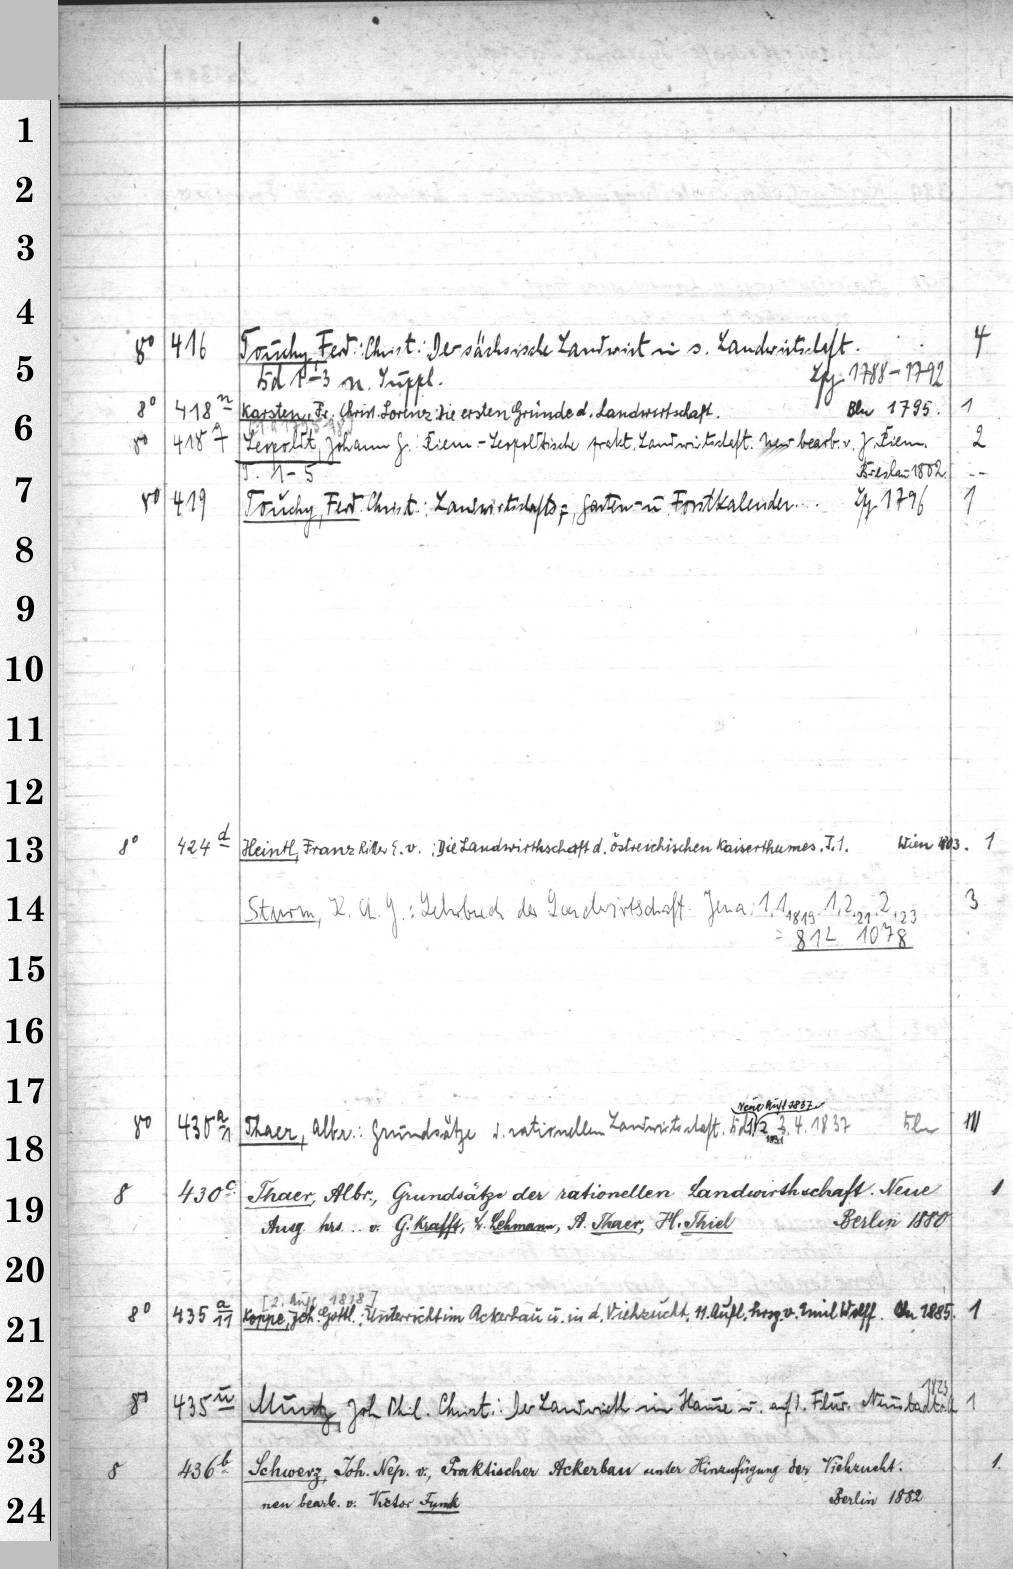 1
2
3
4
8° 416 Touchy, Ferd. Christ.: Der sächsische Landwirt in s. Landwirtschaft. 4
5
Bd 1-3 u. Suppl. Lpg. 1788-1792
8° 418 n Karsten, Fr. Christ. Lorenz: die ersten Gründe d. Landwirtschaft. Bln 1795. 1
6
8° 418 Leopoldt, Johann G.: Riem-Leopoldtische prakt. Landwirtschaft. neu bearb. v. J. Riem. 2
T. 1-5 Breslau 1802
7
8° 419 Touchy, Ferd. Christ.: Landwirtschafts-, Garten- u Forstkalender... Lpg 1796 1
8
9
10
11
12
13
8° 424 d Heintl, Franz Ritter E. v.: Die Landwirthschaft d. östreichischen Kaiserthumes. T. 1. Wien 803. 1
14
Sturm, K. A. G.: Lehrbuch der Landwirtschaft. Jena: 1,1 1819. 1,2 ,21. 2 ,23 3
= 812 1078
15
16
17
Neue Aufl 1837
8° 430 a/n Thaer, Albr.: Grundsätze d. rationellen Landwirtschaft. Bd 1 2 3. 4. 1837 Bln III
1831
18
8 430 c. Thaer, Albr., Grundsätze der rationellen Landwirthschaft. Neue 1
19
Ausg. hrs. v. G. Krafft, C. Lehmann, A. Thaer, H. Thiel Berlin 1880
20
[2. Aufl. 1818]
8° 435 a/11 Koppe, Joh. Gottl.: Unterricht im Ackerbau u. in d. Viehzucht. 11. Aufl. hrsg. v. Emil Wolff. Bln 1885. 1
21
22
1823
8° 435 u Muntz, Joh Phil. Christ.: Der Landwirth im Hause u. auf d. Flur. Neustadt 1
23
8 436 b. Schwerz, Joh. Nep. v., Praktischer Ackerbau unter Hinzufügung der Viehzucht. 1.
neu bearb. v. Victor Funk Berlin 1882
24